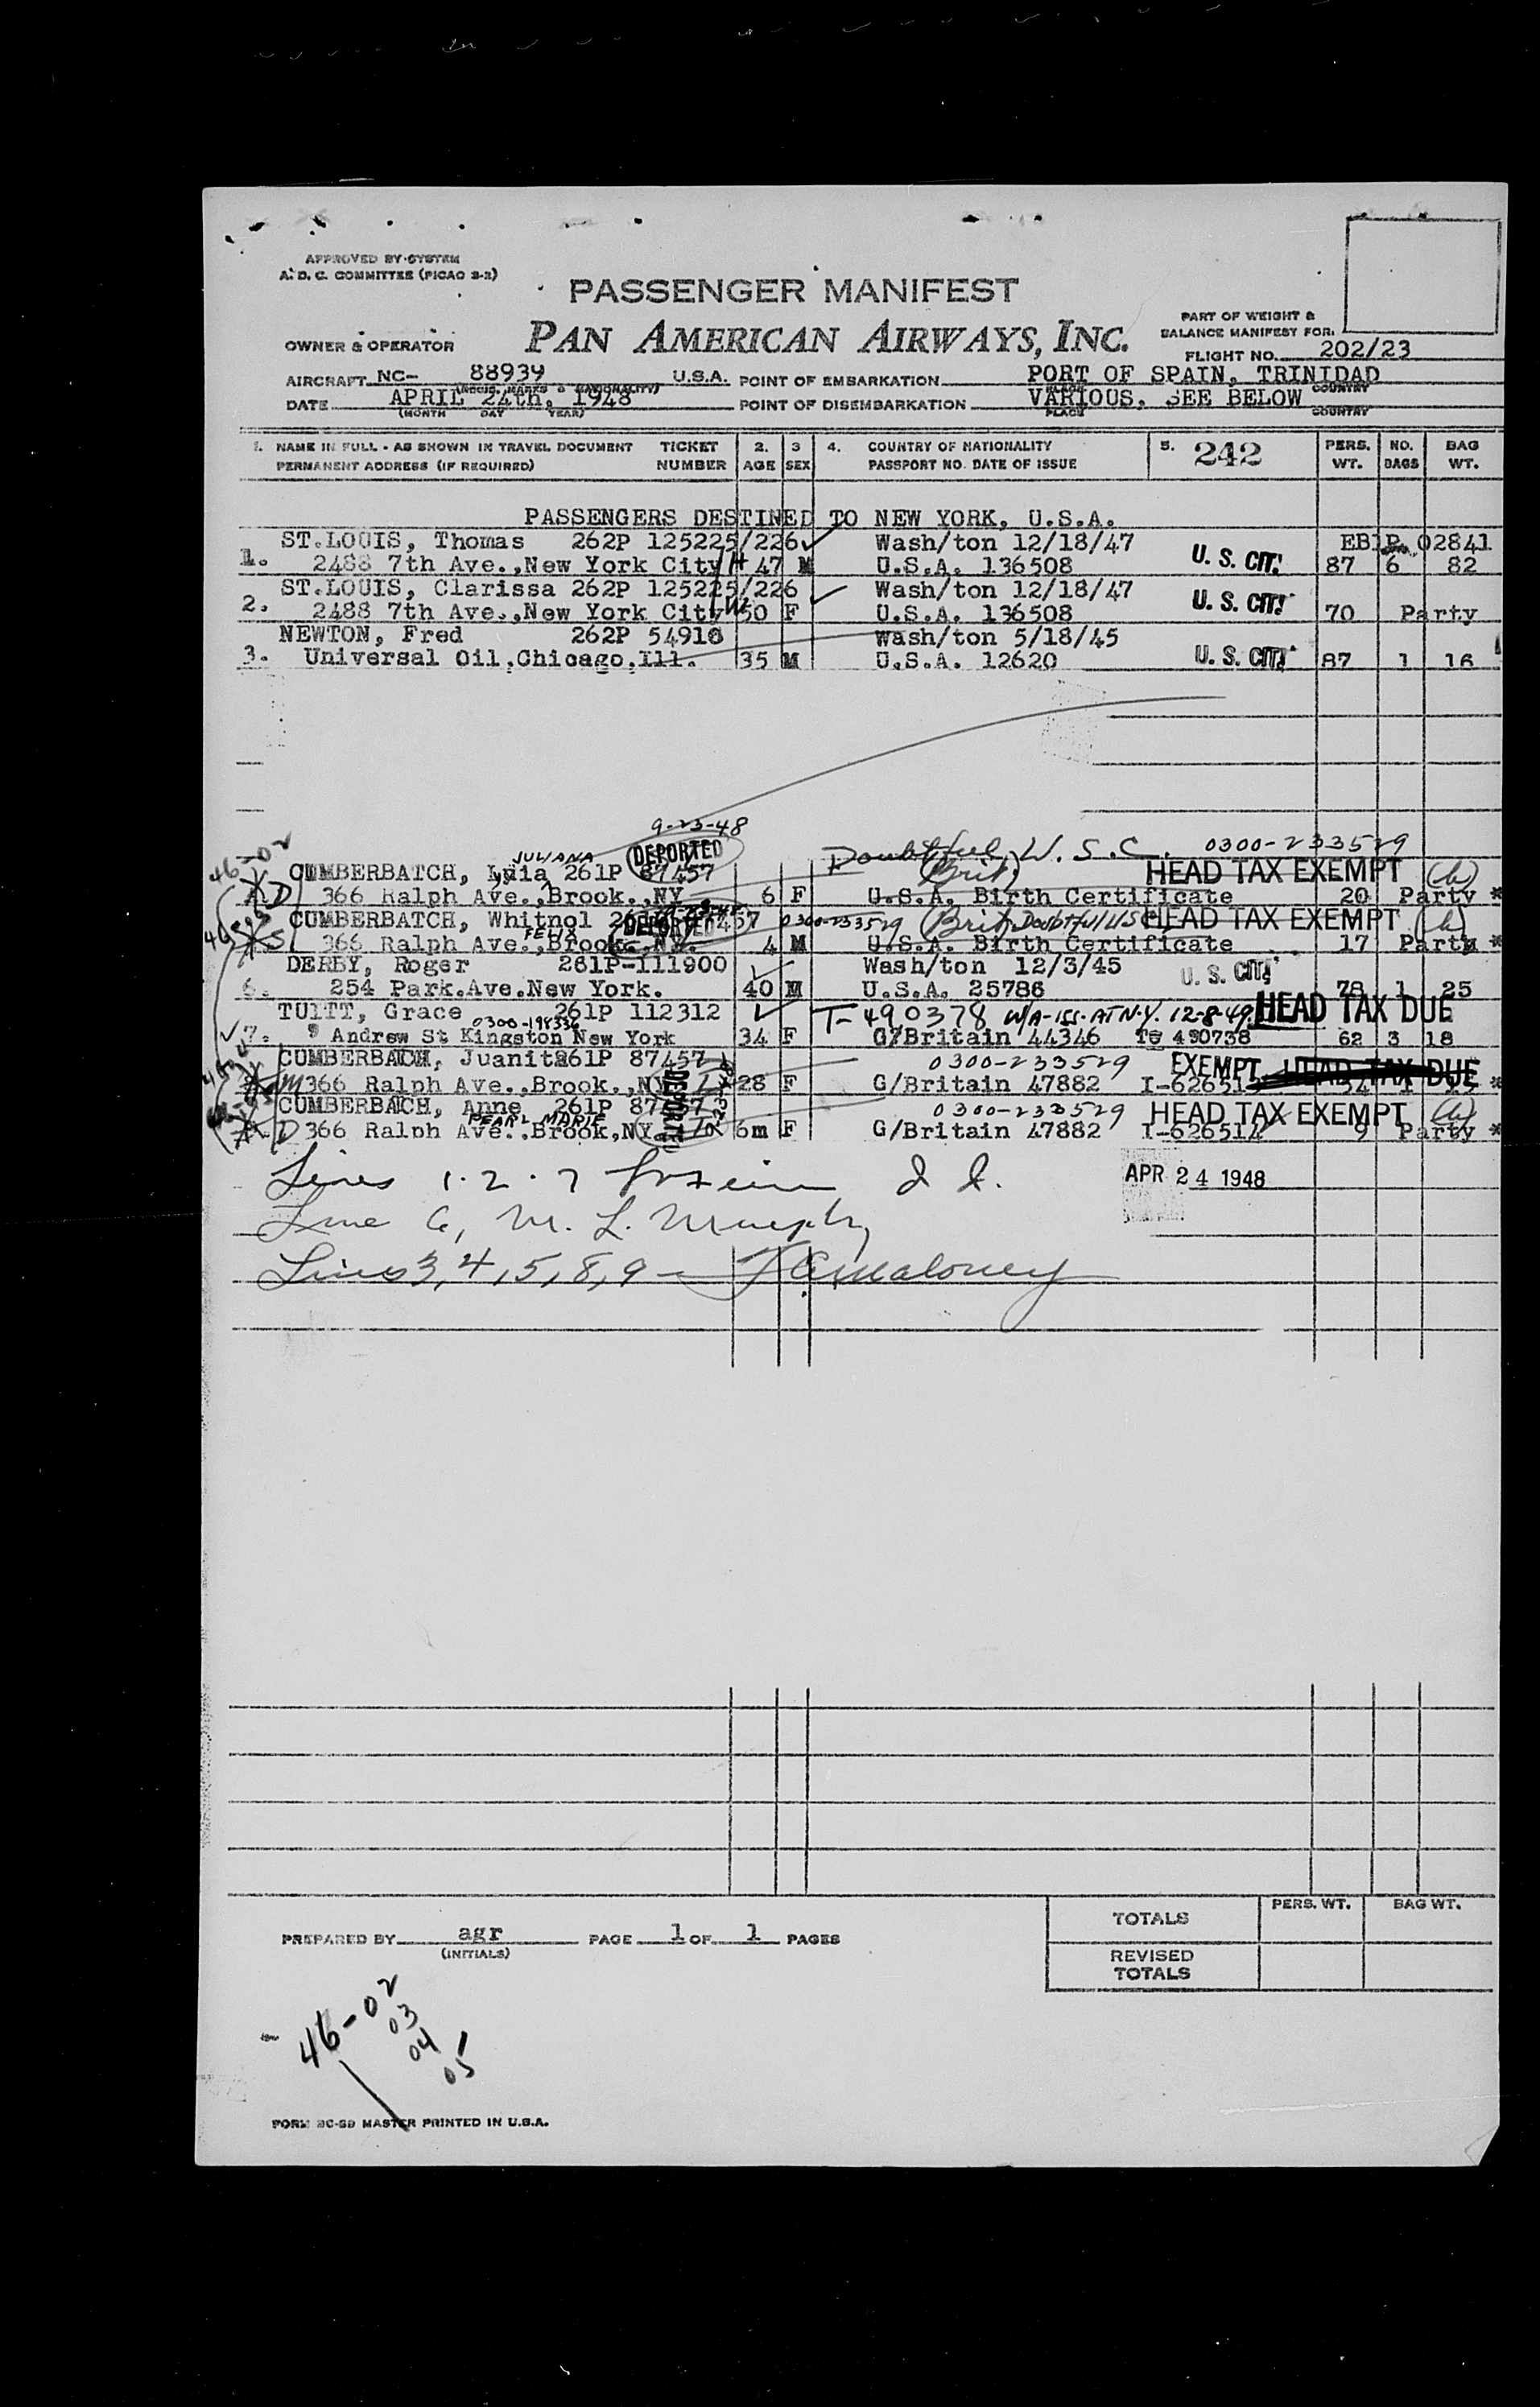 APPROVED BY SYSTEM
A. D. C. COMMITTEE (PICAO S-2)
PASSENGER MANIFEST
PART OF WEIGHT &
BALANCE MANIFEST FOR:
OWNER & OPERATOR PAN AMERICAN AIRWAYS, INC.
FLIGHT NO. 202/23
AIRCRAFT NC- 88939 U.S.A. POINT OF EMBARKATION PORT OF SPAIN, TRINIDAD
DATE APRIL 24th, 1948 POINT OF DISEMBARKATION VARIOUS, SEE BELOW
(MONTH DAY YEAR) PLACE COUNTRY
1. NAME IN FULL - AS SHOWN IN TRAVEL DOCUMENT TICKET 2. 3 4. COUNTRY OF NATIONALITY 5. 242 PERS. NO. BAG
PERMANENT ADDRESS (IF REQUIRED) NUMBER AGE SEX PASSPORT NO. DATE OF ISSUE WT. BAGS WT.
PASSENGERS DESTINED TO NEW YORK, U.S.A.
ST.LOUIS, Thomas 262P 125225/226 Wash/ton 12/18/47 02841
1. 2488 7th Ave.,New York City 47 M U.S.A. 136508 U. S. CIT. 87 6 82
ST.LOUIS, Clarissa 262P 125225/226 Wash/ton 12/18/47
2. 2488 7th Ave.,New York City W 50 F U.S.A. 136508 U. S. CIT. 70 Party
NEWTON, Fred 262P 54910 Wash/ton 5/18/45
3. Universal Oil,Chicago,Ill. 35 M U.S.A. 12620 U. S. CIT. 87 1 16
9-23-48
46-02 JULIANA DEPORTED Doubtful U.S.C. 0300-233529
CUMBERBATCH, 261P 87457 (Brit) HEAD TAX EXEMPT (h)
366 Ralph Ave.,Brook.,NY 6 F U.S.A. Birth Certificate 20 Party *
CUMBERBATCH, Whitnol DEPORTED 0300-233529 (Brit) Doubtful USC HEAD TAX EXEMPT (h)
FELIX
366 Ralph Ave.,Brook.,NY. 4 M U.S.A. Birth Certificate 17 Party *
DERBY, Roger 261P-111900 Wash/ton 12/3/45
6. 254 Park.Ave.New York. 40 M U.S.A. 25786 U. S. CIT. 78 1 25
TUITT, Grace 261P 112312 T-490378 W/A-iss. AT N.Y. 12-8-49 HEAD TAX DUE
7. 9 Andrew St Kingston New York 34 F G/Britain 44346 490738 62 3 18
CUMBERBATCH, Juanita 261P 87457 0300-233529 EXEMPT HEAD TAX DUE
366 Ralph Ave.,Brook.,NY DEPORTED 28 F G/Britain 47882 *
CUMBERBATCH, Anne 261P 87457 0300-233529 HEAD TAX EXEMPT (h)
PEARL MARIE
366 Ralph Ave.,Brook,NY 6m F G/Britain 47882 I-626514 9 Party *
Lines 1. 2. 7
APR 24 1948
Line 6, M. L. Murphy
Lines 3, 4, 5, 8, 9 - Maloney
TOTALS PERS. WT. BAG WT.
PREPARED BY agr PAGE 1 OF 1 PAGES
(INITIALS)
REVISED
TOTALS
46-02
03
04
05
FORM BC-5D MASTER PRINTED IN U.S.A.